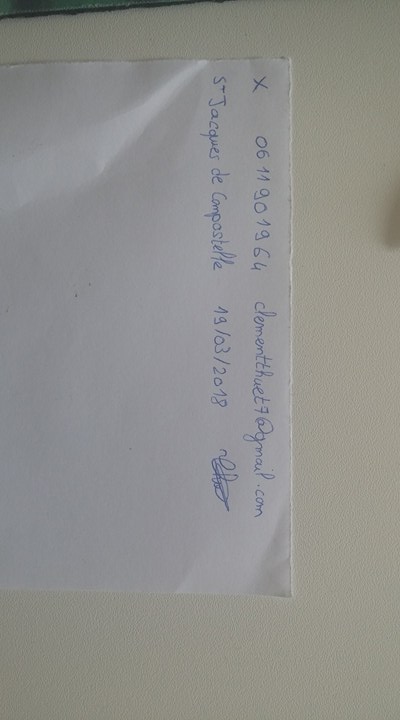 X 06 11 90 19 64 clementthuet76@gmail.com
St Jacques de Compostelle 19/03/2018